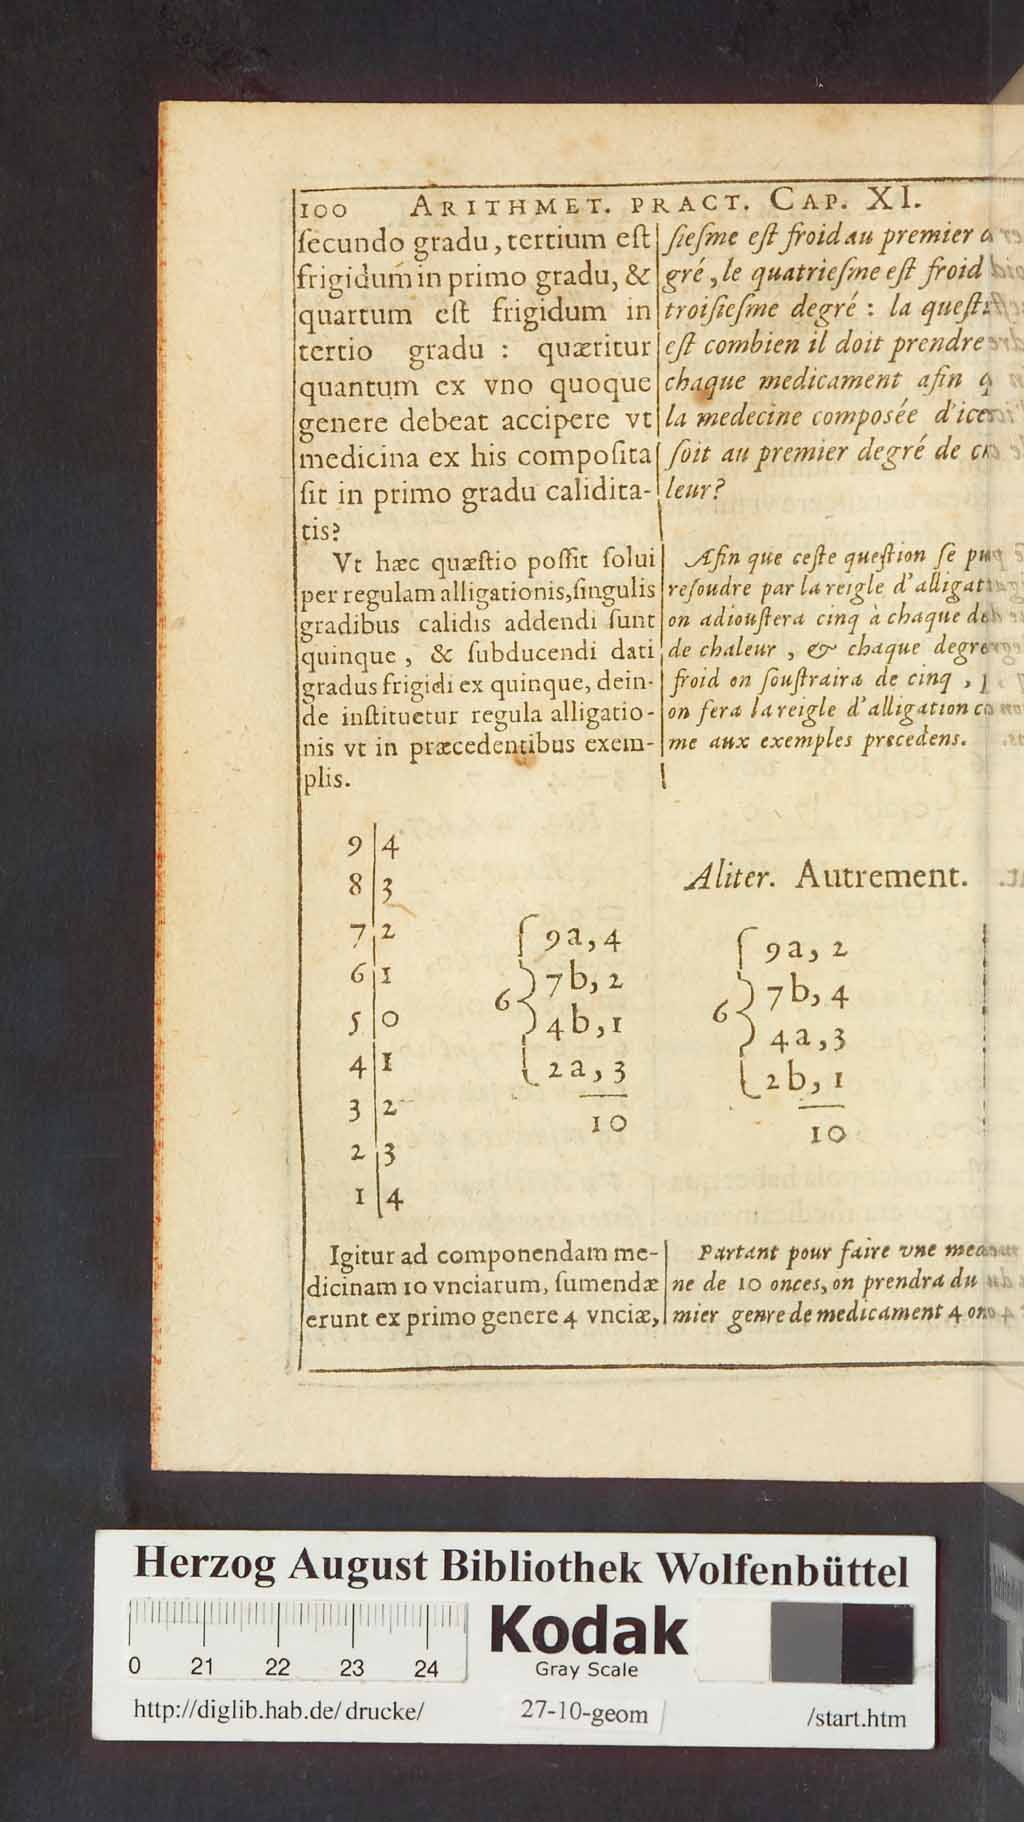 100 ARITHMET. PRACT. CAP. XI.
ſecundo gradu, tertium eſt
frigidum in primo gradu, &
quartum eſt frigidum in
tertio gradu : quæritur
quantum ex vno quoque
genere debeat accipere vt
medicina ex his compoſita
ſit in primo gradu calidita-
tis?
ſieſme eſt froid au premier
gré, le quatrieſme eſt froid
troiſieſme degré : la queſti
eſt combien il doit prendre
chaque medicament afin q
la medecine compoſée d'ice
ſoit au premier degré de
leur?
Vt hæc quæſtio poſſit ſolui
per regulam alligationis, ſingulis
gradibus calidis addendi ſunt
quinque, & ſubducendi dati
gradus frigidi ex quinque, dein-
de inſtituetur regula alligatio-
nis vt in præcedentibus exem-
plis.
Afin que ceſte queſtion ſe
reſoudre par la reigle d'alligat
on adiouſtera cinq à chaque
de chaleur, & chaque degre
froid on ſouſtraira de cinq,
on fera la reigle d'alligation
me aux exemples precedens.
9|4
8|3
7|2
6|1
5|0
4|1
3|2
2|3
1|4
6
9a, 4
7b, 2
4b, 1
2a, 3
10
Aliter. Autrement.
6
9a, 2
7b, 4
4a, 3
2b, 1
10
Igitur ad componendam me-
dicinam 10 vnciarum, ſumendæ
erunt ex primo genere 4 vnciæ,
Partant pour faire vne
ne de 10 onces, on prendra du
mier genre de medicament 4
Herzog August Bibliothek Wolfenbüttel
Kodak
Gray Scale
0 21 22 23 24
http://diglib.hab.de/drucke/ 27-10-geom /start.htm